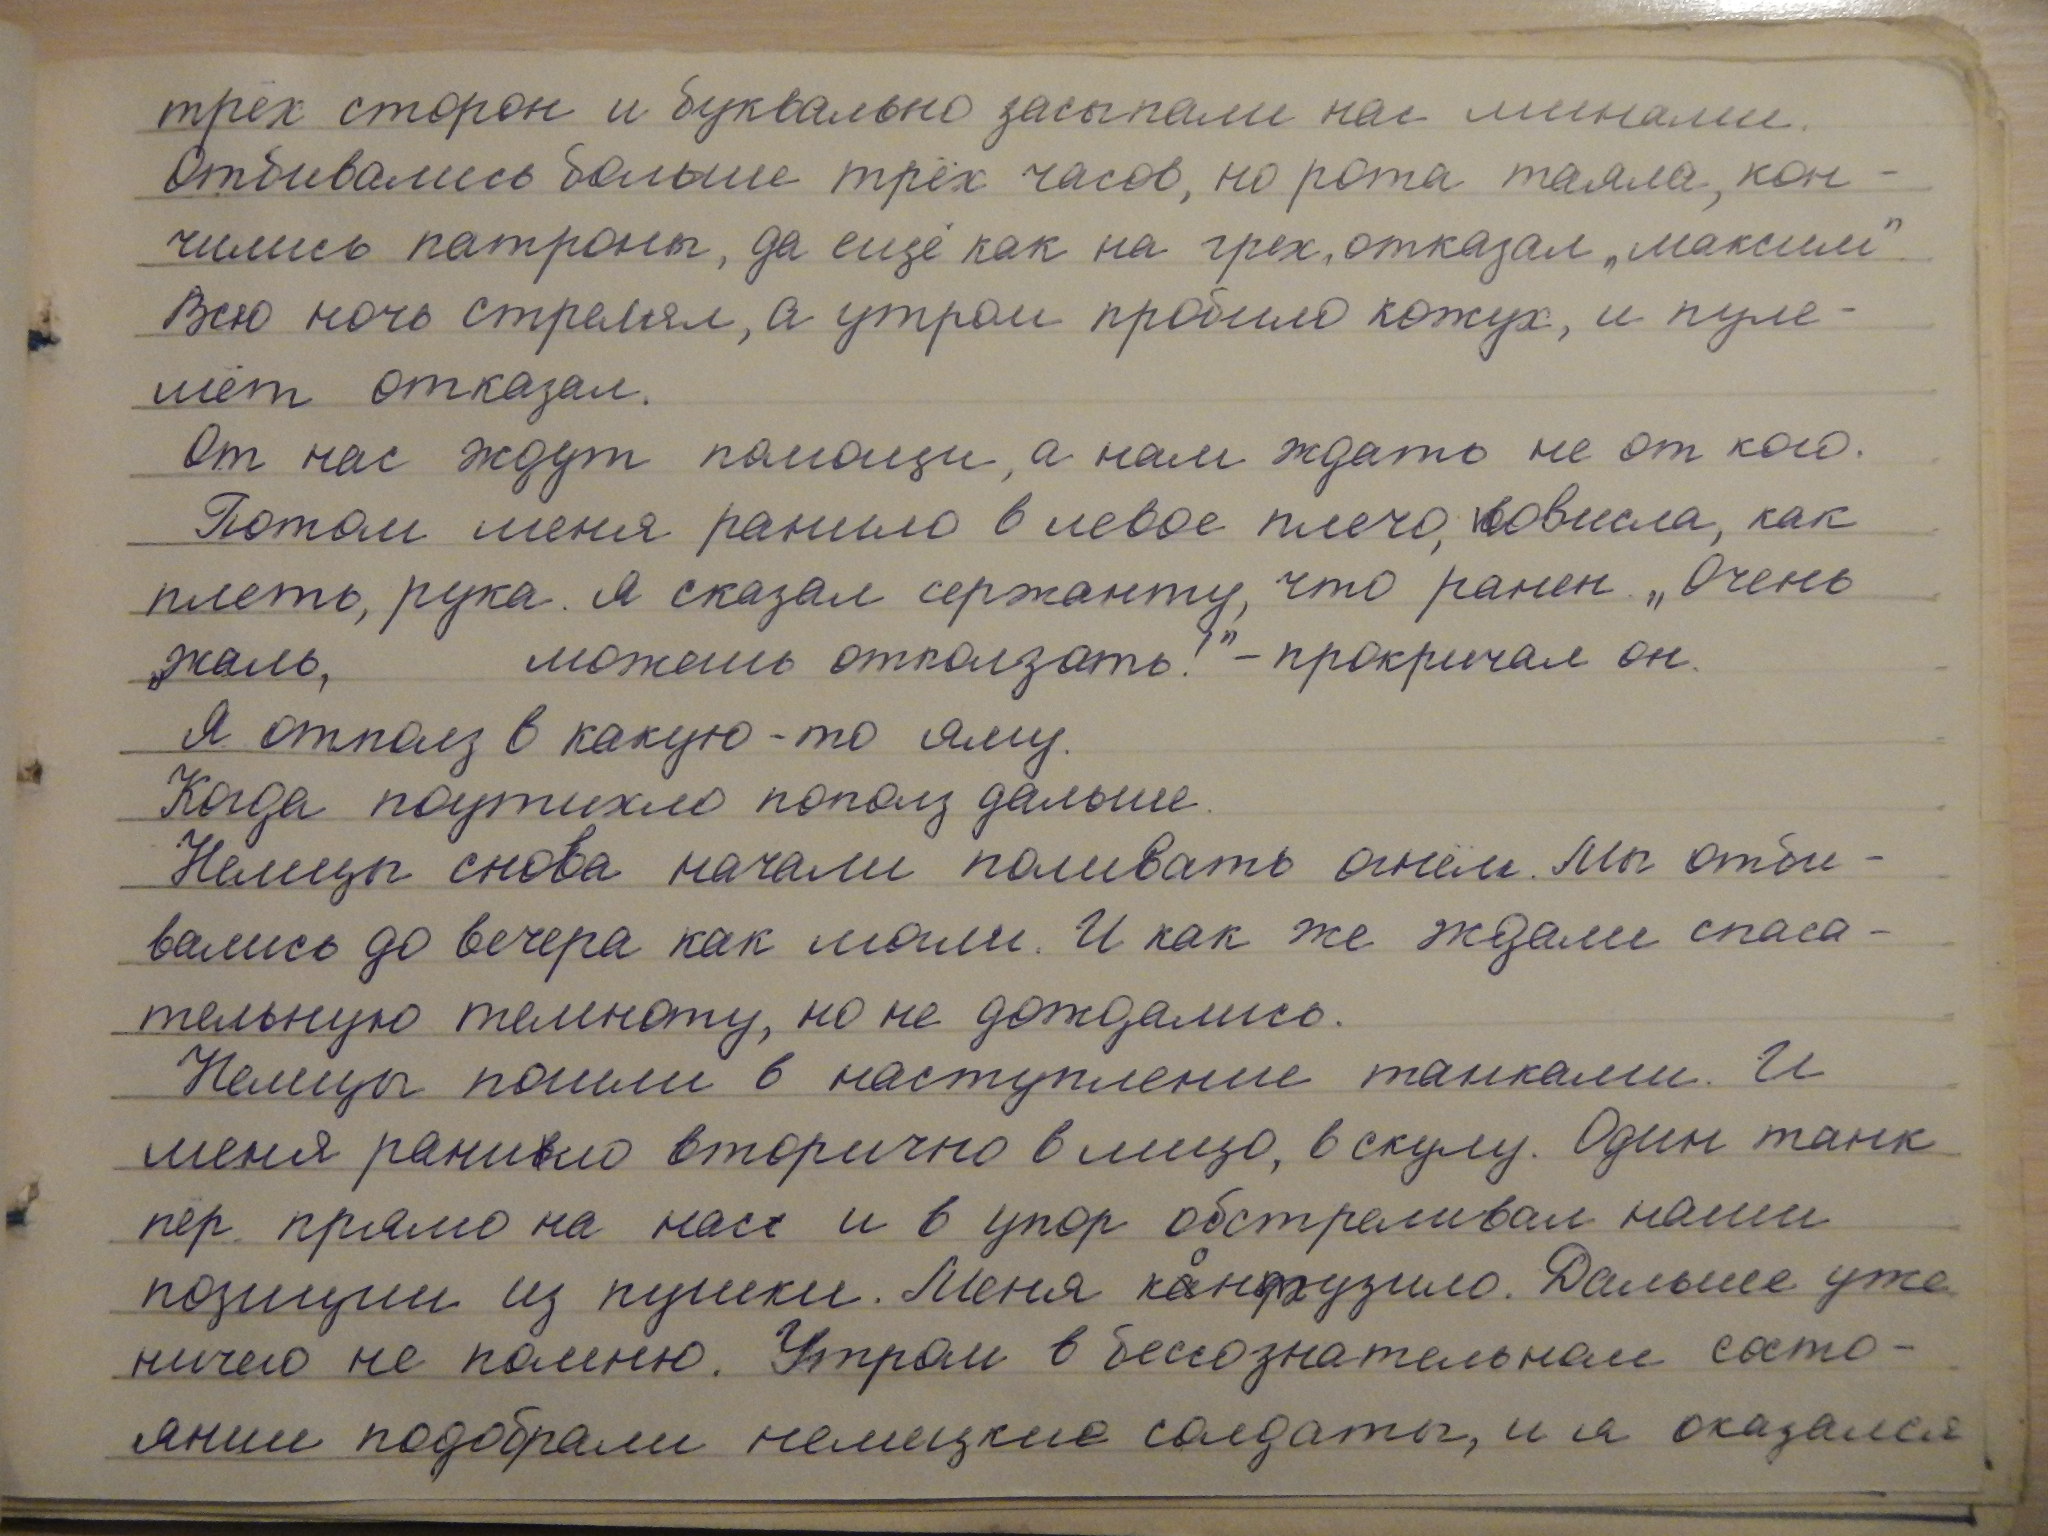 трёх сторон и буквально засыпали нас минами.
Отбивались больше трёх часов, но рота таяла, кон-
чились патроны, да ещё как на грех, отказал „максим"
Всю ночь стрелял, а утром пробило кожух, и пуле-
мёт отказал.
От нас ждут помощи, а нам ждать не от кого.
Потом меня ранило в левое плечо, повисла, как
плеть, рука. Я сказал сержанту, что ранен. „Очень
жаль, можешь отползать!" - прокричал он.
Я отполз в какую-то яму.
Когда поутихло пополз дальше.
Немцы снова начали поливать огнём. Мы отби-
вались до вечера как могли. И как же ждали спаса-
тельную темноту, но не дождались.
Немцы пошли в наступление танками. И
меня ранило вторично в лицо, в скулу. Один танк
пёр прямо на нас и в упор обстреливал наши
позиции из пушки. Меня контузило. Дальше уже
ничего не помню. Утром в бессознательном состо-
янии подобрали немецкие солдаты, и я оказался